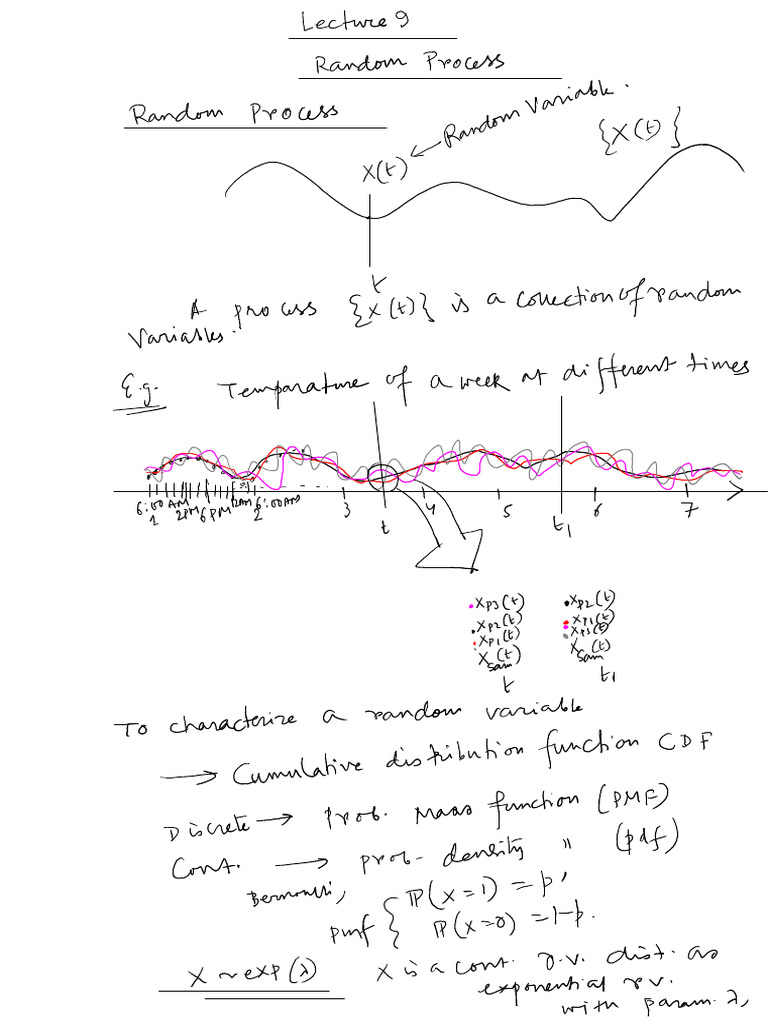 Lecture 9
Random Process
Random Process
Random Variable.
X(t)
{X(t)}
t
A process {X(t)} is a collection of random
Variables.
E.g. Temparature of a week at different times
6:00AM 2PM 6PM 2AM 6:00AM
1 2 3 4 5 6 7
t t₁
X_P3(t) X_P2(t)
X_P2(t) X_P1(t)
X_P1(t) X_P3(t)
X_Sam(t) X_Sam(t)
t t₁
To characterize a random variable
→ Cumulative distribution function CDF
Discrete → Prob. Mass function (PMF)
Cont. → prob. density " (pdf)
Bernoulli,
pmf { ℙ(X=1) = p,
ℙ(X=0) = 1-p.
X ~ exp(λ) X is a cont. r.v. dist. as
exponential r.v.
with param. λ,